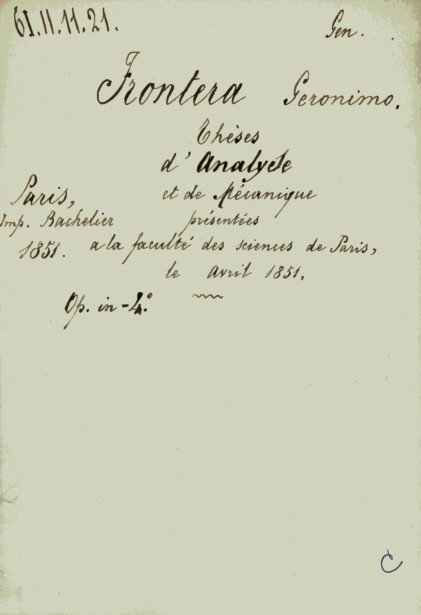 61.11.11.21. Gen.
Frontera Geronimo.
Thèses
d'Analyse
Paris, et de Mécanique
Imp. Bachelier présentées
1851. a la faculté des sciences de Paris,
le avril 1851.
Op. in-4.º
C